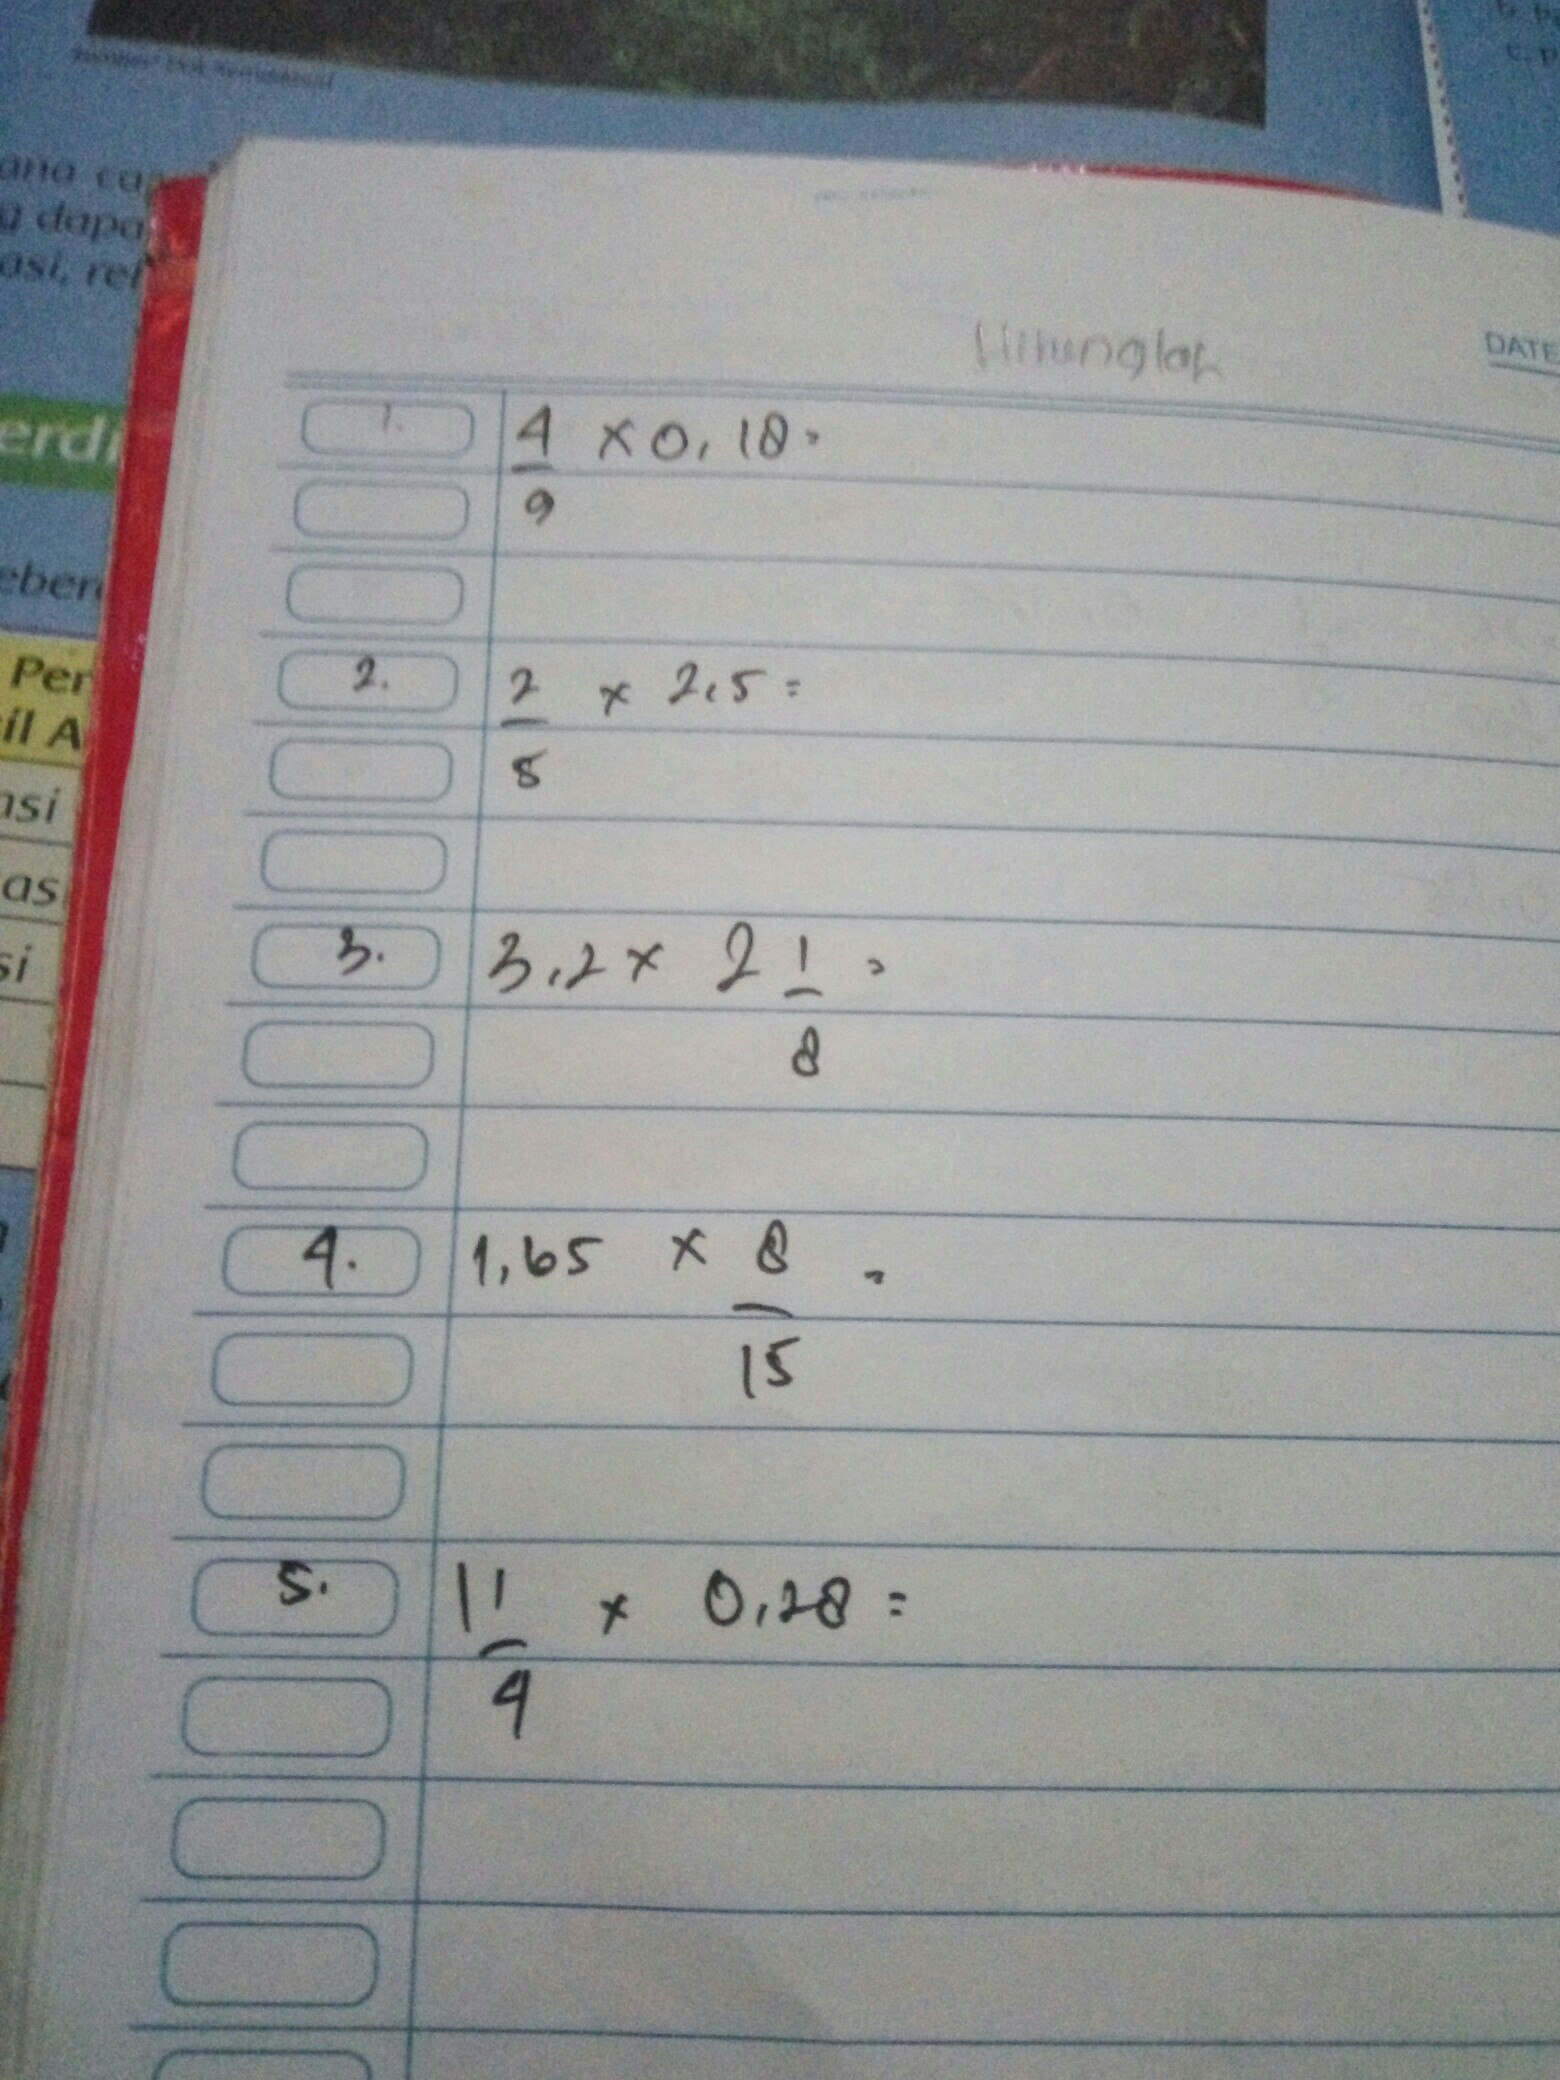 ana ca
g dapa
asi, rel
erdi
eber
Per
il A
asi
as
si
Hitunglah
DATE
1. 4/9 x 0,18=
2. 2/5 x 2,5=
3. 3,2 x 2 1/8 =
4. 1,65 x 8/15 =
5. 1 1/4 x 0,28=